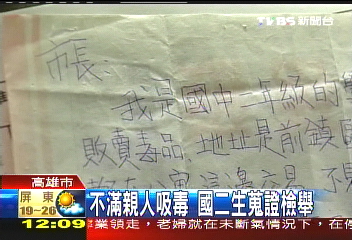 TVBS新聞台
市長:
我是國中二年級的
販賣毒品.地址是前鎮區
高雄市
屏東
19~26
不滿親人吸毒 國二生蒐證檢舉
12:09
業領走,老婦就在未斷氣情況下,在停